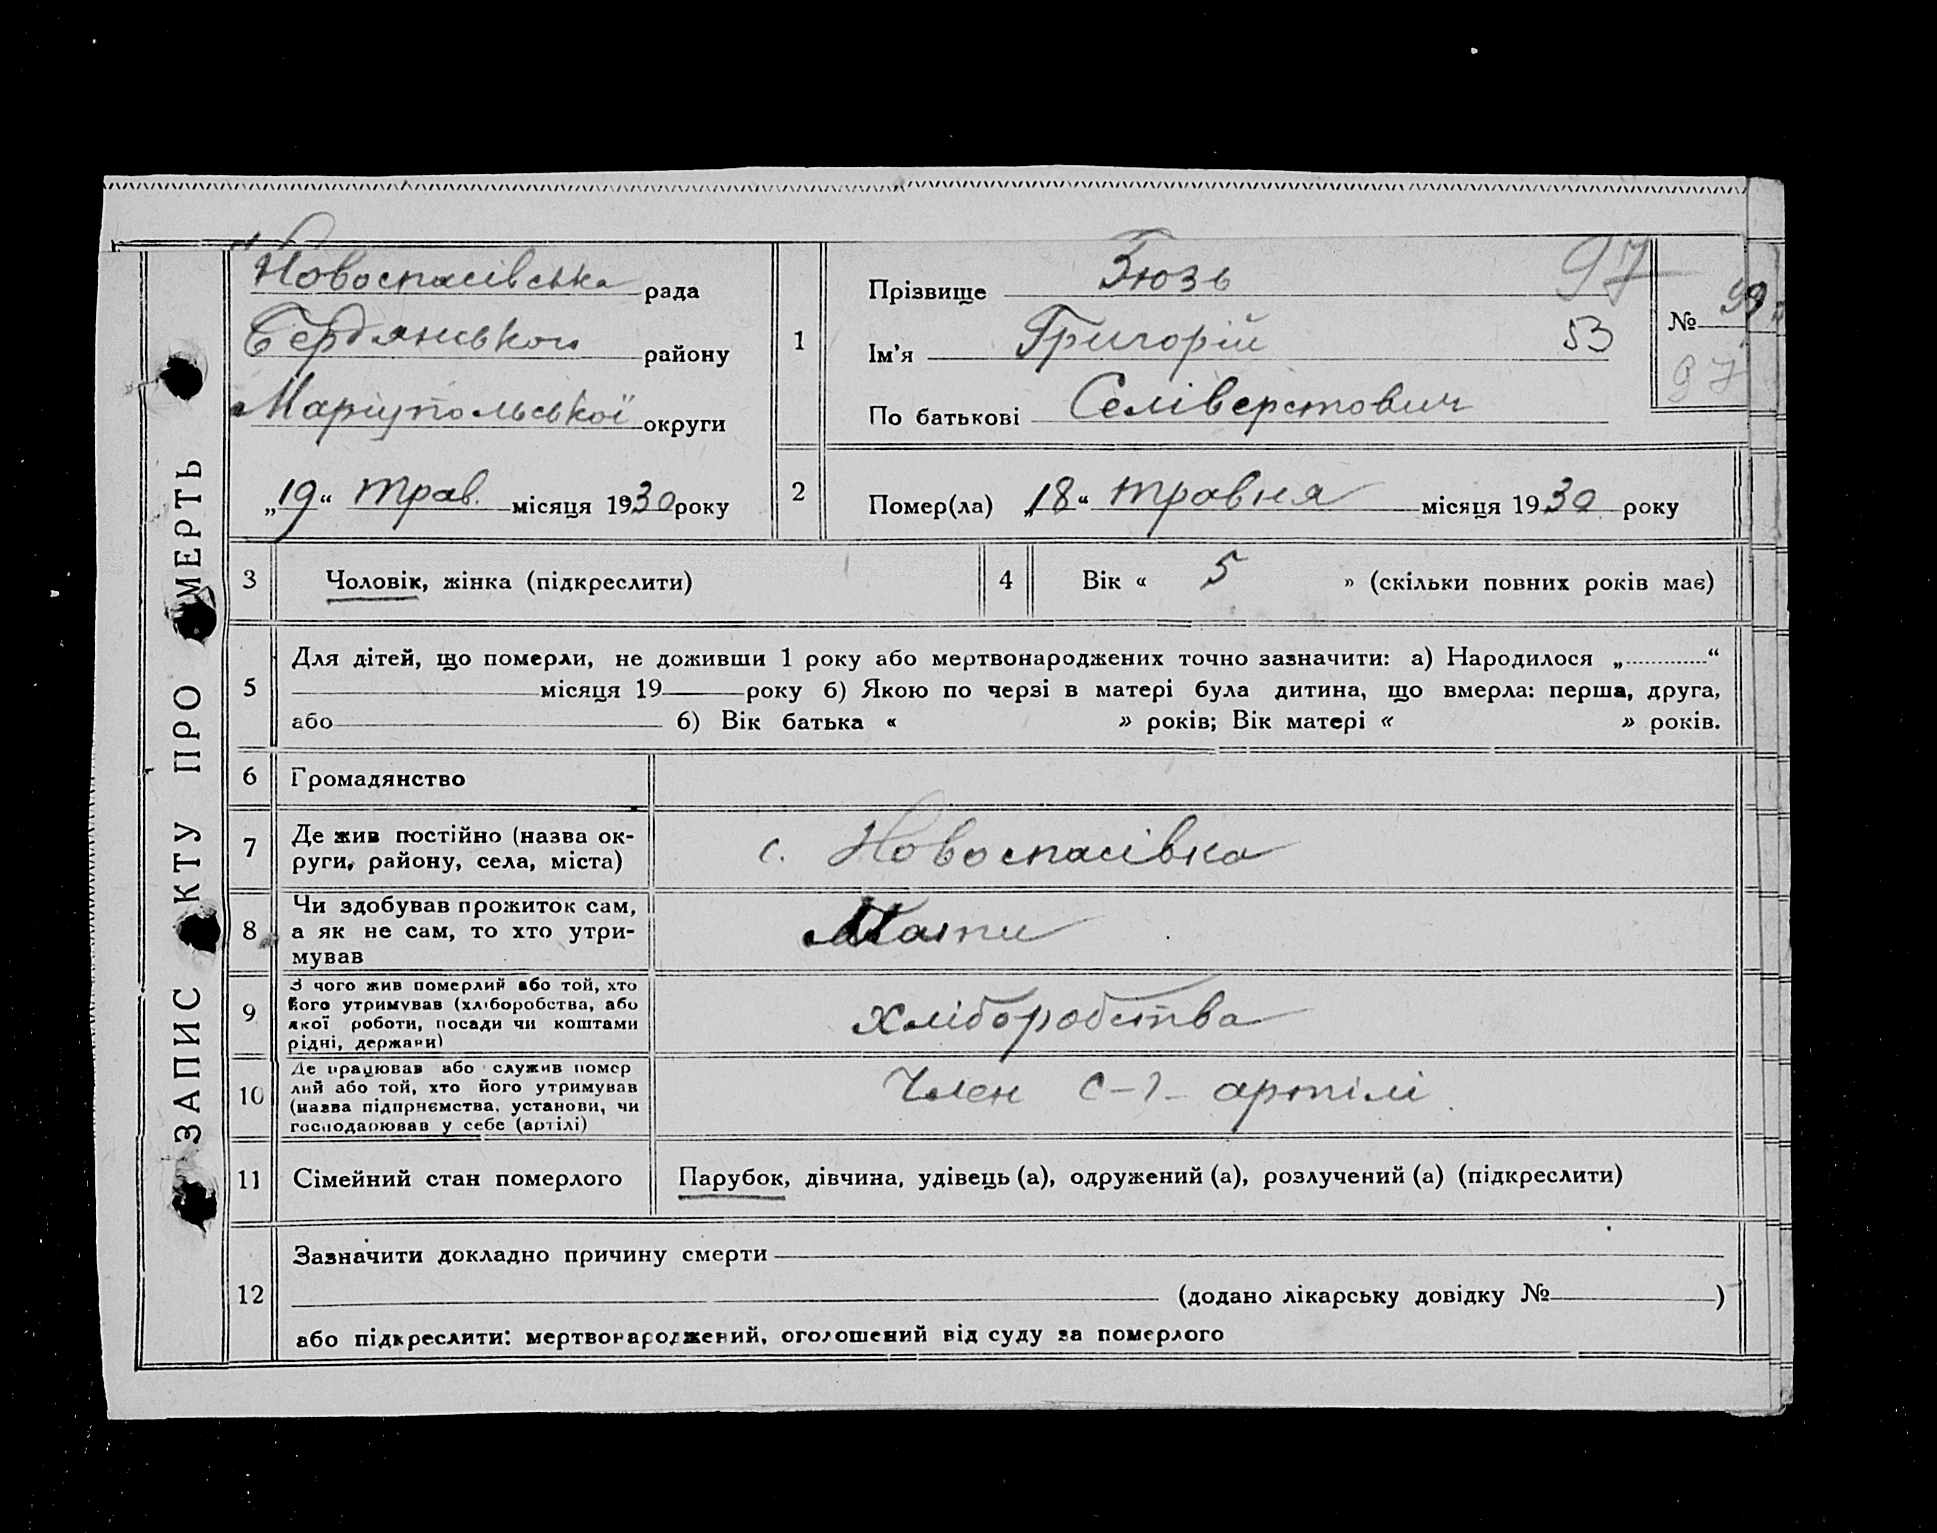 ЗАПИС АКТУ ПРО СМЕРТЬ
Новоспасівська рада
Бердянського району
Маріупольської округи
„19“ трав. місяця 1930 року
1
Прізвище Бюзь 97
Ім’я Григорій 53
По батькові Селіверстович
№ 99
97
2
Помер(ла) „18“ травня місяця 1930 року
3 Чоловік, жінка (підкреслити)
4 Вік « 5 » (скільки повних років має)
5
Для дітей, що померли, не доживши 1 року або мертвонароджених точно зазначити: а) Народилося „ “
місяця 19 року б) Якою по черзі в матері була дитина, що вмерла: перша, друга,
або б) Вік батька « » років; Вік матері « » років.
6 Громадянство
7
Де жив постійно (назва ок-
руги, району, села, міста)
с. Новоспасівка
8
Чи здобував прожиток сам,
а як не сам, то хто утри-
мував
Мати
9
З чого жив померлий або той, хто
його утримував (хліборобства, або
якої роботи, посади чи коштами
рідні, держави)
хліборобства
10
Де працював або служив помер
лий або той, хто його утримував
(назва підприємства, установи, чи
господарював у себе (артілі)
Член с-г. артілі
11 Сімейний стан померлого
Парубок, дівчина, удівець (а), одружений (а), розлучений (а) (підкреслити)
12
Зазначити докладно причину смерти
(додано лікарську довідку № )
або підкреслити: мертвонароджений, оголошений від суду за померлого